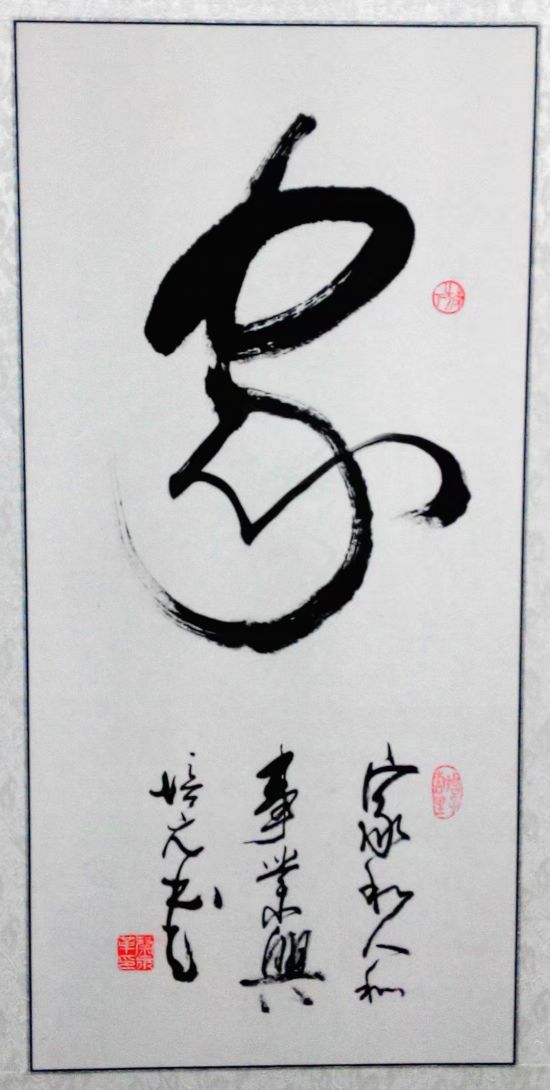 家
家和人和
事業興
培元书